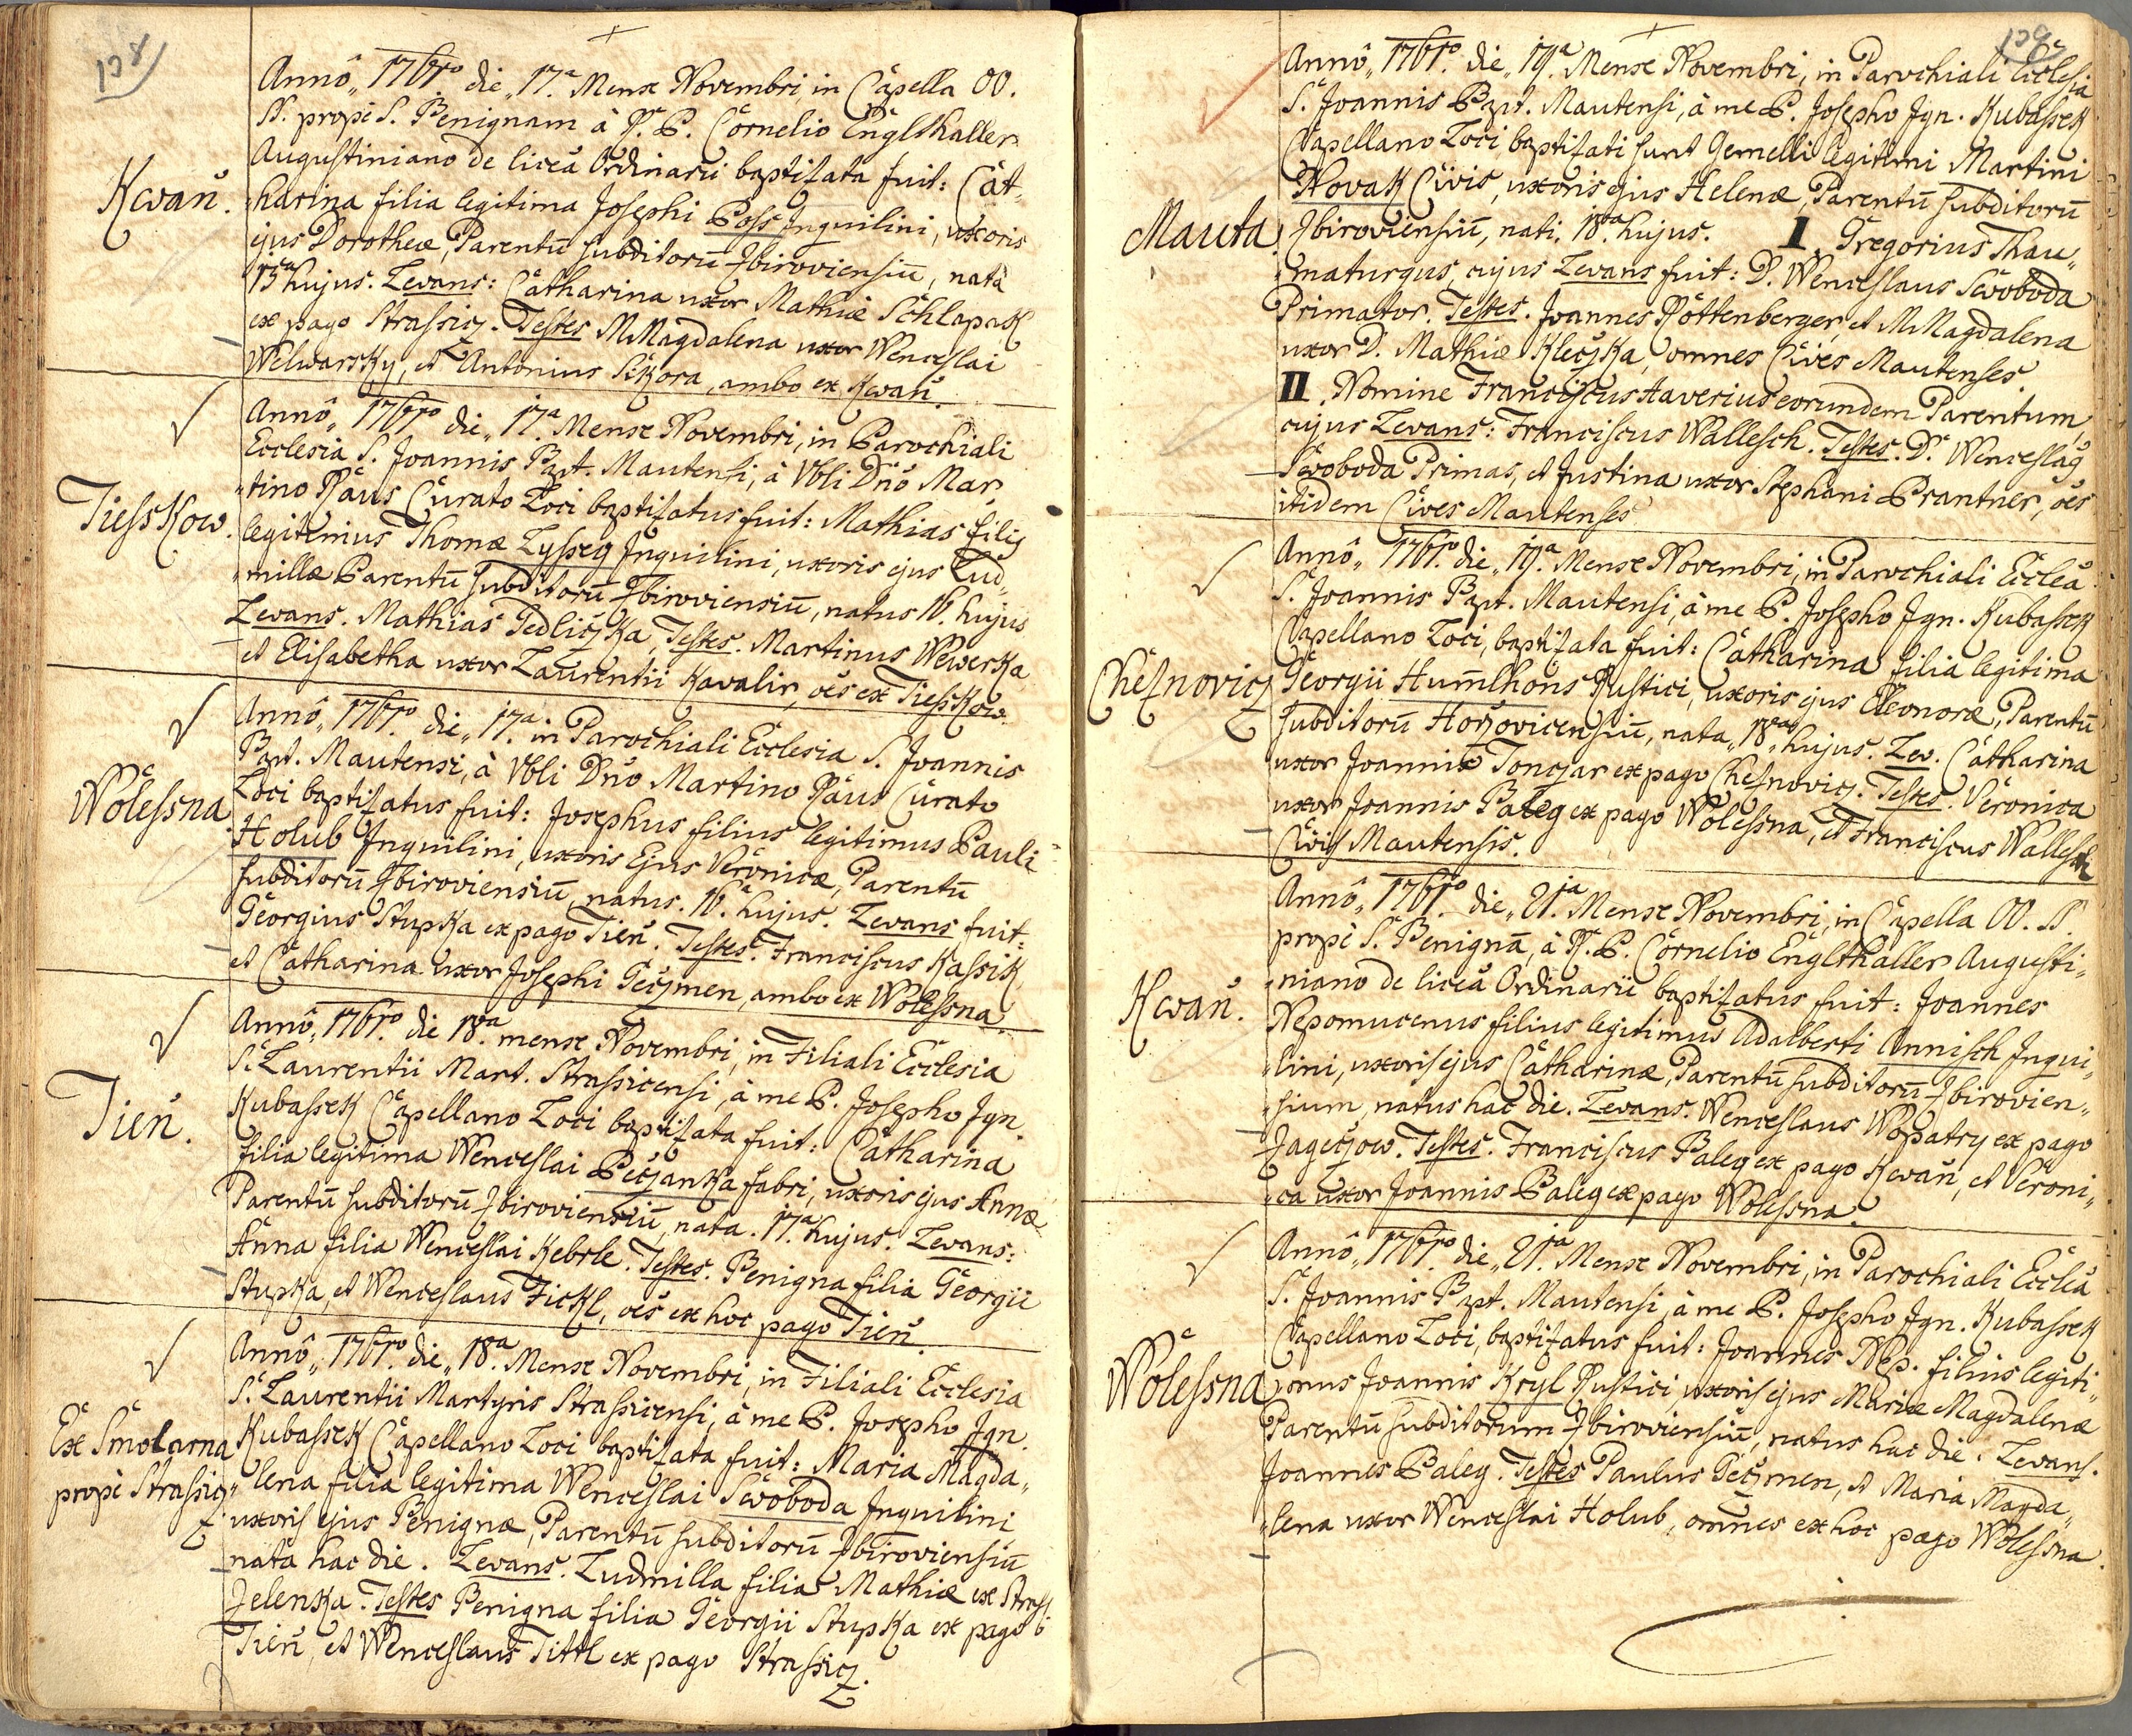 138
Annô„ 1761mo die„ 17a. Mense Novembri in Capella OO.
SS. propè S. Benignam à R. P. Cornelio Englthaller
Augustiniano de liceâ Ordinarii baptisata fuit: Cat-
Kwaň.
harina filia legitima Josephi Poss Inquilini, uxoris
ejus Dorotheæ, Parentū subditorū Zbiroviensiū, nata
15a hujus. Levans: Catharina uxor Mathiæ Schlapak
ex pago Strassicz. Testes M. Magdalena uxor Wenceslai
Welwarsky, et Antonius Sikora, ambo ex Kwaň.
Annô„ 1761mo die„ 17a. Mense Novembri, in Parochiali
Ecclesia S. Joannis Bapt. Mautensi, à Vbli Dn̄o Mar„
Tiesskow.
„tino Raus Curato Loci baptisatus fuit: Mathias filig
legitimus Thomæ Lysseg Inquilini, uxoris ejus Lud„
„millæ Parentū subditorū Zbiroviensiū, natus 16. hujus
Levans. Mathias Jedliczka, Testes. Martinus Wewerka
et Elisabetha uxor Laurentii Kavalir, oēs ex Tiesskow.
Annô„ 1761mo die„ 17a. in Parochiali Ecclesia S. Joannis
Bapt. Mautensi, à Vbli Dn̄o Martino Raus Curato
Wolessna
Loci baptisatus fuit: Josephus filius legitimus Pauli
Holub Inquilini, uxoris Ejus Veronicæ, Parentū
subditorū Zbiroviensiū, natus. 16a. hujus. Levans fuit:
Georgius Stupka ex pago Tieň. Testes. Franciscus Kassik
et Catharina uxor Josephi Geczmen, ambo ex Wolessna.
Annô„ 1761mo die 18a. mense Novembri, in Filiali Ecclesia
S. Laurentii Mart. Strassicensi, à me P. Josepho Jgn.
Tieň.
Kubassek Capellano Loci baptisata fuit: Catharina
filia legitima Wenceslai Peczanka fabri, uxoris ejus Annæ
Parentū subditorū Zbiroviensiū, nata. 17a. hujus. Levans:
Anna filia Wenceslai Kebrle. Testes. Benigna filia Georgii
Stupka, et Wenceslaus Fickl, oēs ex hoc pago Tieň.
Annô„ 1761mo die„ 18a. Mense Novembri, in Filiali Ecclesia
S. Laurentii Martyris Strassicensi, à me P. Josepho Jgn.
Ex Smolarna
propè Strassicz
Kubassek Capellano Loci baptisata fuit: Maria Magda„
„lena filia legitima Wenceslai Swoboda Inquilini
uxoris ejus Benignæ, Parentū subditorū Zbiroviensiū
nata hac die. Levans. Ludmilla filia Mathiæ ex Strass
Jelenka. Testes Benigna filia Georgii Stupka ex pago
Tieň, et Wenceslaus Tittl ex pago Strassicz.
139
Annô„ 1761mo die„ 19a. Mense Novembri, in Parochiali Ecclesia
S. Joannis Bapt. Mautensi, à me P. Josepho Jgn. Kubassek
Capellano Loci, baptisati sunt Gemelli legitimi Martini
Novak Civis, uxoris ejus Helenæ, Parentū subditorū
Mauta
Zbiroviensiū, nati. 18va. hujus. I. Gregorius Thau„
„maturgus, cujus Levans fuit: D. Wenceslaus Swoboda
Primator. Testes. Joannes Rottenberger, et M. Magdalena
uxor D. Mathiæ Kleczka, omnes Cives Mautenses.
II. Nomine Franciscus Xaverius eorundem Parentum,
cujus Levans: Franciscus Wallesch. Testes. D. Wenceslag
Swoboda Primas, et Justina uxor Stephani Brantner, oēs
itidem Cives Mautenses
Annô„ 1761mo die„ 19a. Mense Novembri, in Parochiali Eccleâ
S. Joannis Bapt. Mautensi, à me P. Josepho Jgn. Kubassek
Capellano Loci, baptisata fuit: Catharina filia legitima
Cheznovicz
Georgii Hum̄lhons Rustici, uxoris ejus Eleonoræ, Parentū
subditorū Horzovicensiū, nata„ 18va hujus. Lev. Catharina
uxor Joannis Tonczar ex pago Cheznovicz. Testes. Veronica
uxor Joannis Baleg ex pago Wolessna, et Franciscus Wallesch
Civis Mautensis.
Annô„ 1761mo die„ 21ma. Mense Novembri, in Capella OO. SS.
propè S. Benignā, à R. P. Cornelio Englthaller Augusti„
Kwaň.
„niano de liceâ Ordinarii baptisatus fuit: Joannes
Nepomucenus filius legitimus Adalberti Annisch Inqui„
„lini, uxoris ejus Catharinæ, Parentū subditorū Zbirovien„
„sium, natus hac die. Levans. Wenceslaus Wopatry ex pago
Zageczow. Testes. Franciscus Baleg ex pago Kwaň, et Veroni„
„ca uxor Joannis Baleg ex pago Wolessna.
Annô„ 1761mo die„ 21ma. Mense Novembri, in Parochiali Eccleâ
S. Joannis Bapt. Mautensi, à me P. Josepho Jgn. Kubassek
Capellano Loci, baptisatus fuit: Joannes Nep. filius legiti„
Wolessna
„mus Joannis Kryl Rustici, uxoris ejus Mariæ Magdalenæ
Parentū subditorum Zbiroviensiū, natus hac die. Levans.
Joannes Baleg. Testes Paulus Geczmen, et Maria Magda„
„lena uxor Wenceslai Holub, omnes ex hoc pago Wolessna.